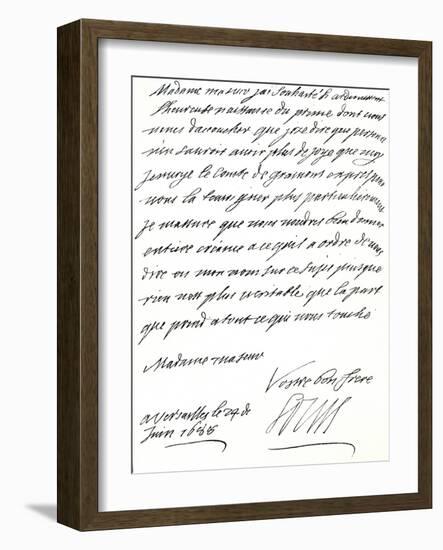 Madame ma sœur j'ai souhaité si ardemment
l'heureuse naissance du prince dont vous
venes d'acoucher que j'ose dire que personne
n'en sauroit avoir plus de joye que moy
j'envoye le Comte de gramont exprès pour
vous la tesmoigner plus particulièrement
je m'assure que vous voudres bien donner
entière créance a ce qu'il a ordre de vous
dire en mon nom sur ce sujet puisque
rien n'est plus veritable que la part
que prend a tout ce qui vous touche
Madame ma sœur
Vostre bon frere
Louis
a Versailles le 24 de
Juin 1688